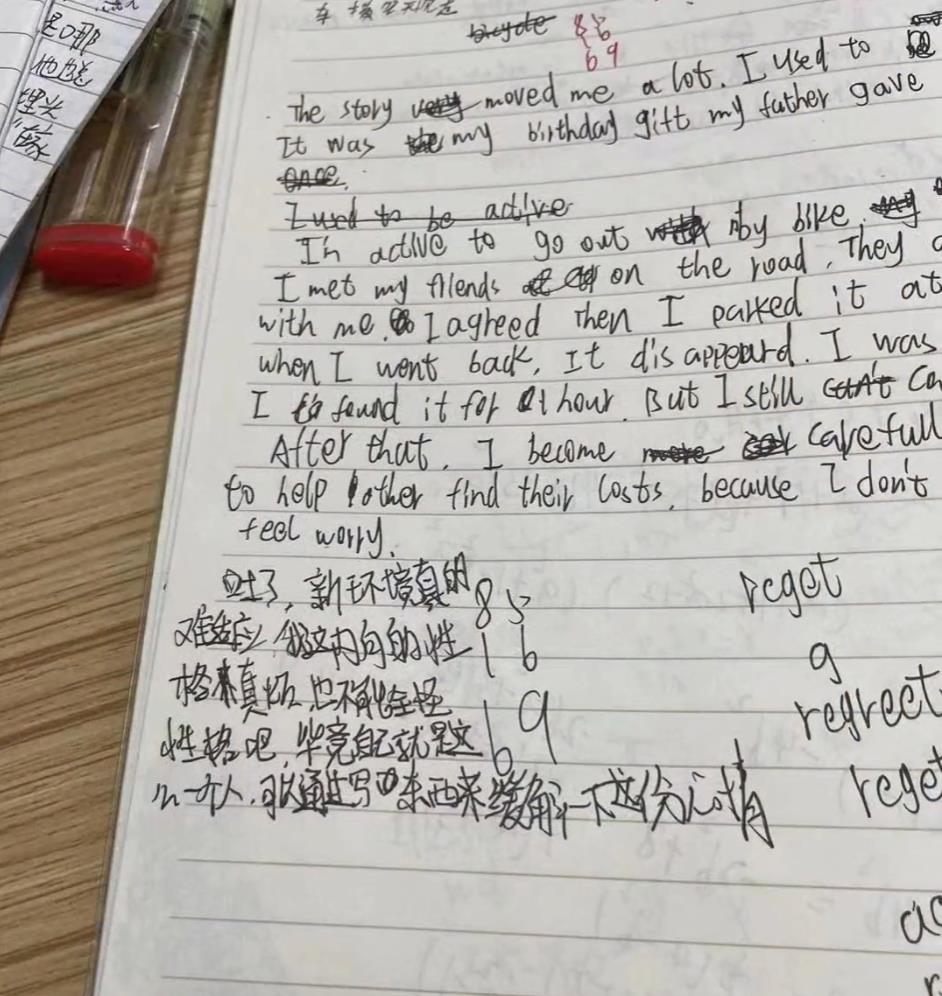 是口那
他
埋头
bicycle 85
69
The story very moved me a lot. I used to
It was the my birthday gift my father gave
once.
I used to be active
I'm active to go out by bike.
I met my friends on the road. They
with me. I agreed Then I parked it at
when I went back, It disappeard. I was
I found it for 1 hour. But I still can't Ca
After that, I become more carefull
to help other find their Losts, because I don't
feel worry.
新环境真的
85
reget
难适应 我这内向的性
16
g
格来真烦 也不能全怪
69
regrect
性格吧, 毕竟自己就是这
么一个人, 可以通过写东西来缓解一下这份心情
reget